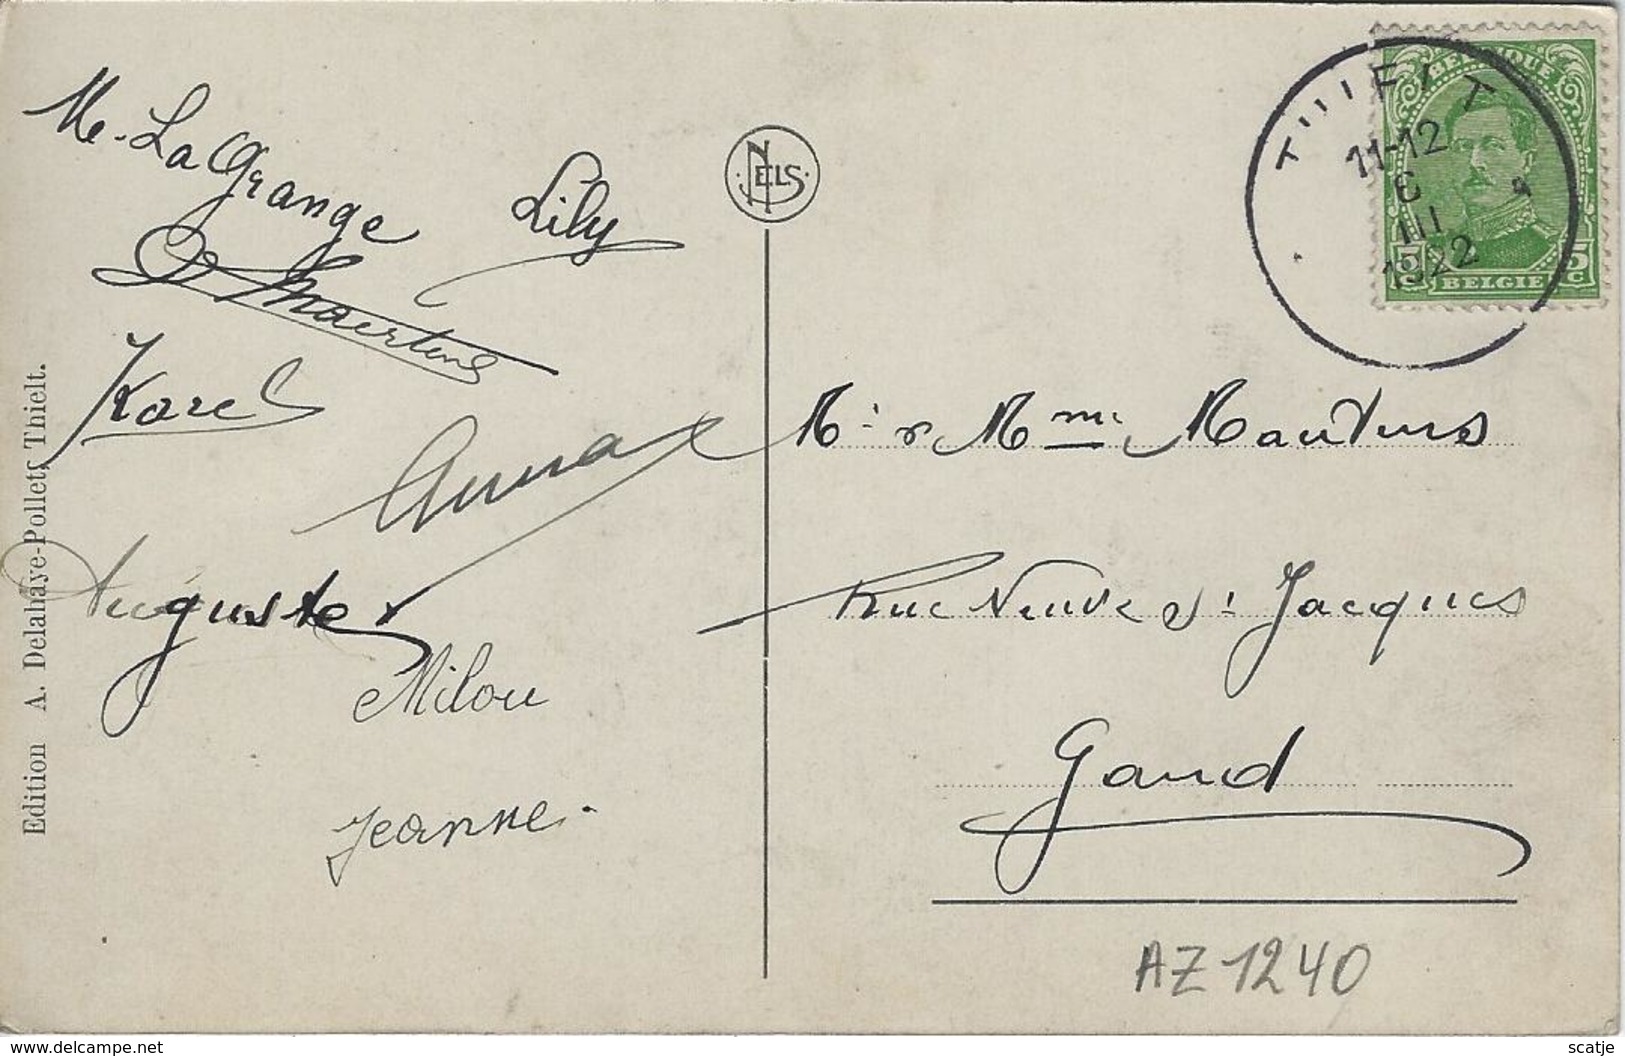 Edition A. Delahaye-Pollet, Thielt.
M. LaGrange
Lily
Maertens
Karel
Anna
Auguste
Milou
Jeanne.
NELS
BELGIQUE
THIELT
11-12
6
III
1922
5c
BELGIE
Mr & Mme Maertens
Rue Neuve St Jacques
Gand
AZ1240
www.delcampe.net
scatje